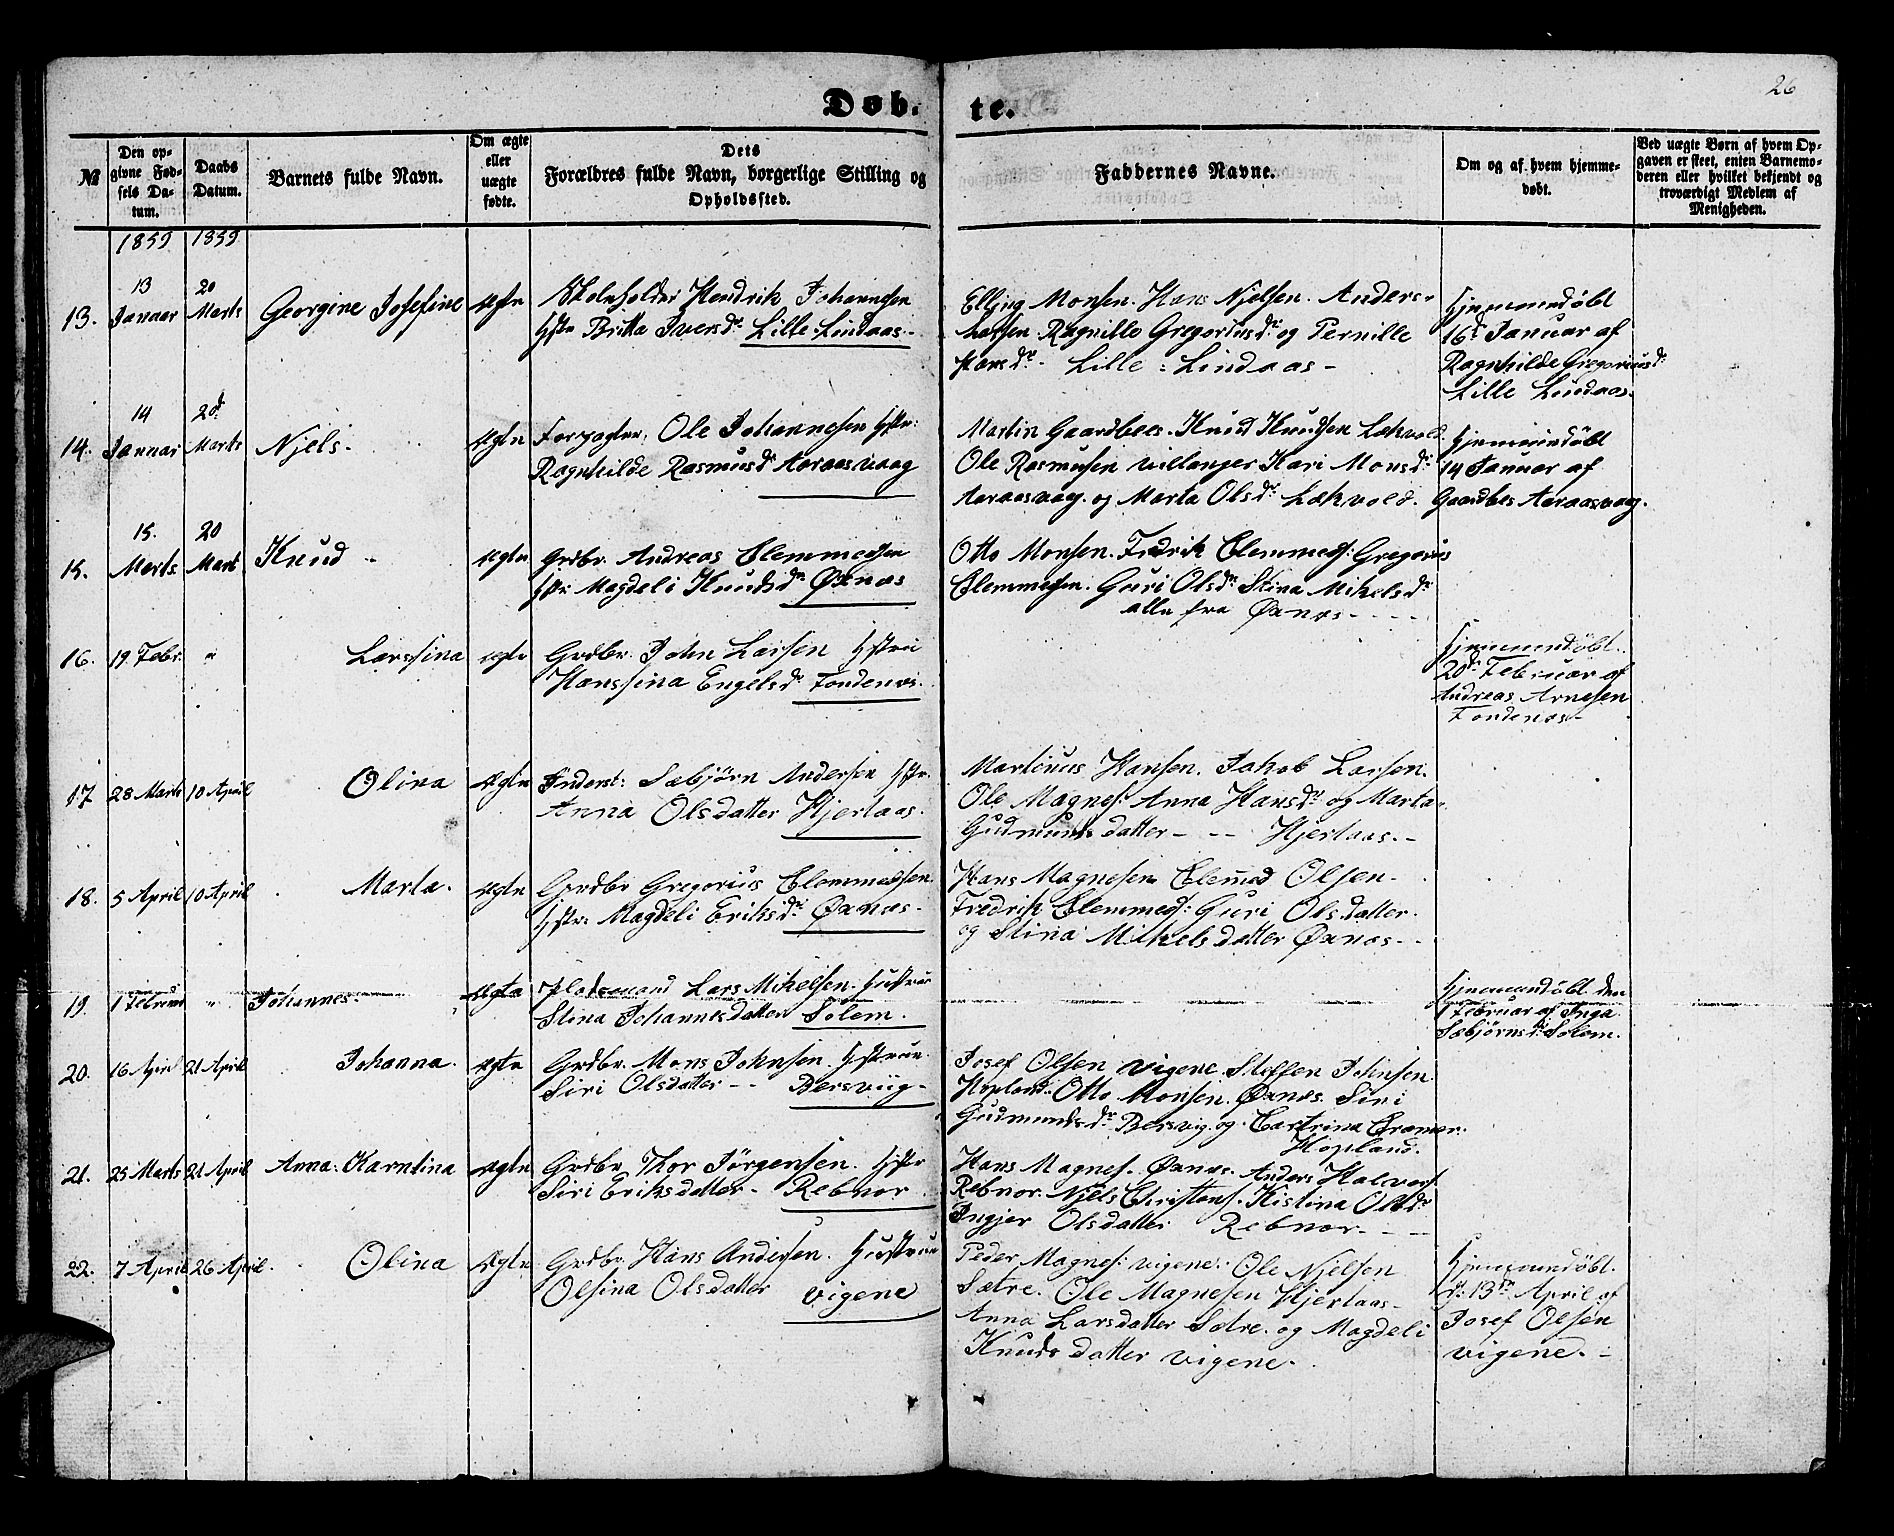 26
Døb. te.
№
Den opgivne Fødsels Datum.
Daabs Datum.
Barnets fulde Navn.
Om ægte eller uægte fødte.
Dets Forældres fulde Navn, borgerlige Stilling og Opholdssted.
Faddernes Navne.
Om og af hvem hjemmedøbt.
Ved uægte Børn af hvem Opgaven er skeet, enten Barnemoderen eller hvilket bekjendt og troværdigt Medlem af Menigheden.
1859 1859
13. 13 Januar 20 Marts Georgine Josefine ægte
Skoleholder Hendrik Johannesen
Hstr Britta Iversdr Lille Lindaas
Elling Monsen. Hans Njelsen. Anders
Larsen. Ragnille Gregoriusdr og Pernille
Hansdr Lille Lindaas
Hjemmedøbt
16d Januar af
Ragnhilde Gregoriusdr
Lille Lindaas.
14. 14 Januar 20d Marts Njels. ægte
Forpagter. Ole Johannesen Hstr:
Ragnhilde Rasmusdr Aaraasvaag
Martin Gaardbees. Knud Knudsen Lækvold
Ole Rasmusen Villanger Kari Monsdr
Aaraasvaag. og Marta Olsdr Lækvold.
Hjemmedøbt
14 Januar af
Gaardbes Aaraasvaag.
15. 15. Marts 20 Marts Knud ægte
Grdbr. Andreas Clemmedsen
Hstr Magdeli Knudsdr Øxnæs
Otto Monsen. Fredrik Clemmeds: Gregorius
Clemmedsen. Guri Olsdr Stina Mikelsdr
alle fra Øxnæs
16. 19 Febr. " Larssina ægte
Grdbr. John Larsen Hstru
Hanssina Engelsdr Fondenæs.
Hjemmedøbt
20de Februar af
Andreas Arnesen
Fondenæs
17 28 Marts 10 April Olina ægte
Inderst: Sæbjørn Andersen Hstr.
Anna Olsdatter Hjertaas.
Martinus Hansen. Jakob Larsen.
Ole Magnes: Anna Hansdr og Marta
Gudmunds datter Hjertaas.
18. 5 April 10 April Marta. ægte
Grdbr Gregorius Clemmedsen.
Hstr: Magdeli Eriksdr Øxnæs
Hans Magnesen Clemed Olsen
Fredrik Clemmeds: Guri Olsdatter.
og Stina Mikelsdatter Øxnæs
19. 1 Februar " Johannes. ægte
Pladsmand Lars Mikelsen. Hustrue
Stina Johannesdatter Solem.
Hjemmedøbt den
1 Februar af Inga
Sæbjørnsdr Solem.
20. 16 April 21 April Johanna. ægte
Grdbr. Mons Johnsen. Hstrue.
Siri Olsdatter Bersviig
Josef Olsen Vigene. Steffen Johnsen
Hopland. Otto Monsen. Øxnæs. Siri
Gudmundsdr Bersvig. og Cartrina Cramer.
Hopland.
21. 25 Marts 21 April Anna. Karntina ægte
Grdbr. Thor Jørgensen. Hstr
Siri Eriksdatter Rebnor
Hans Magnes. Øxnæs. Anders Halvors.
Rebnor. Njels Christens. Kistina Olsdr
Ingjer Olsdatter Rebnor
22. 7 April 26 April Olina ægte
Grdbr. Hans Andersen. Hustrue
Olsina Olsdatter Vigene
Peder Magnes: Vigene. Ole Njelsen
Sætre. Ole Magnesen Hjertaas
Anna Larsdatter Sætre. og Magdeli
Knuds datter Vigene.
Hjemmedøbt.
d: 13de April af
Josef Olsen
Vigene.